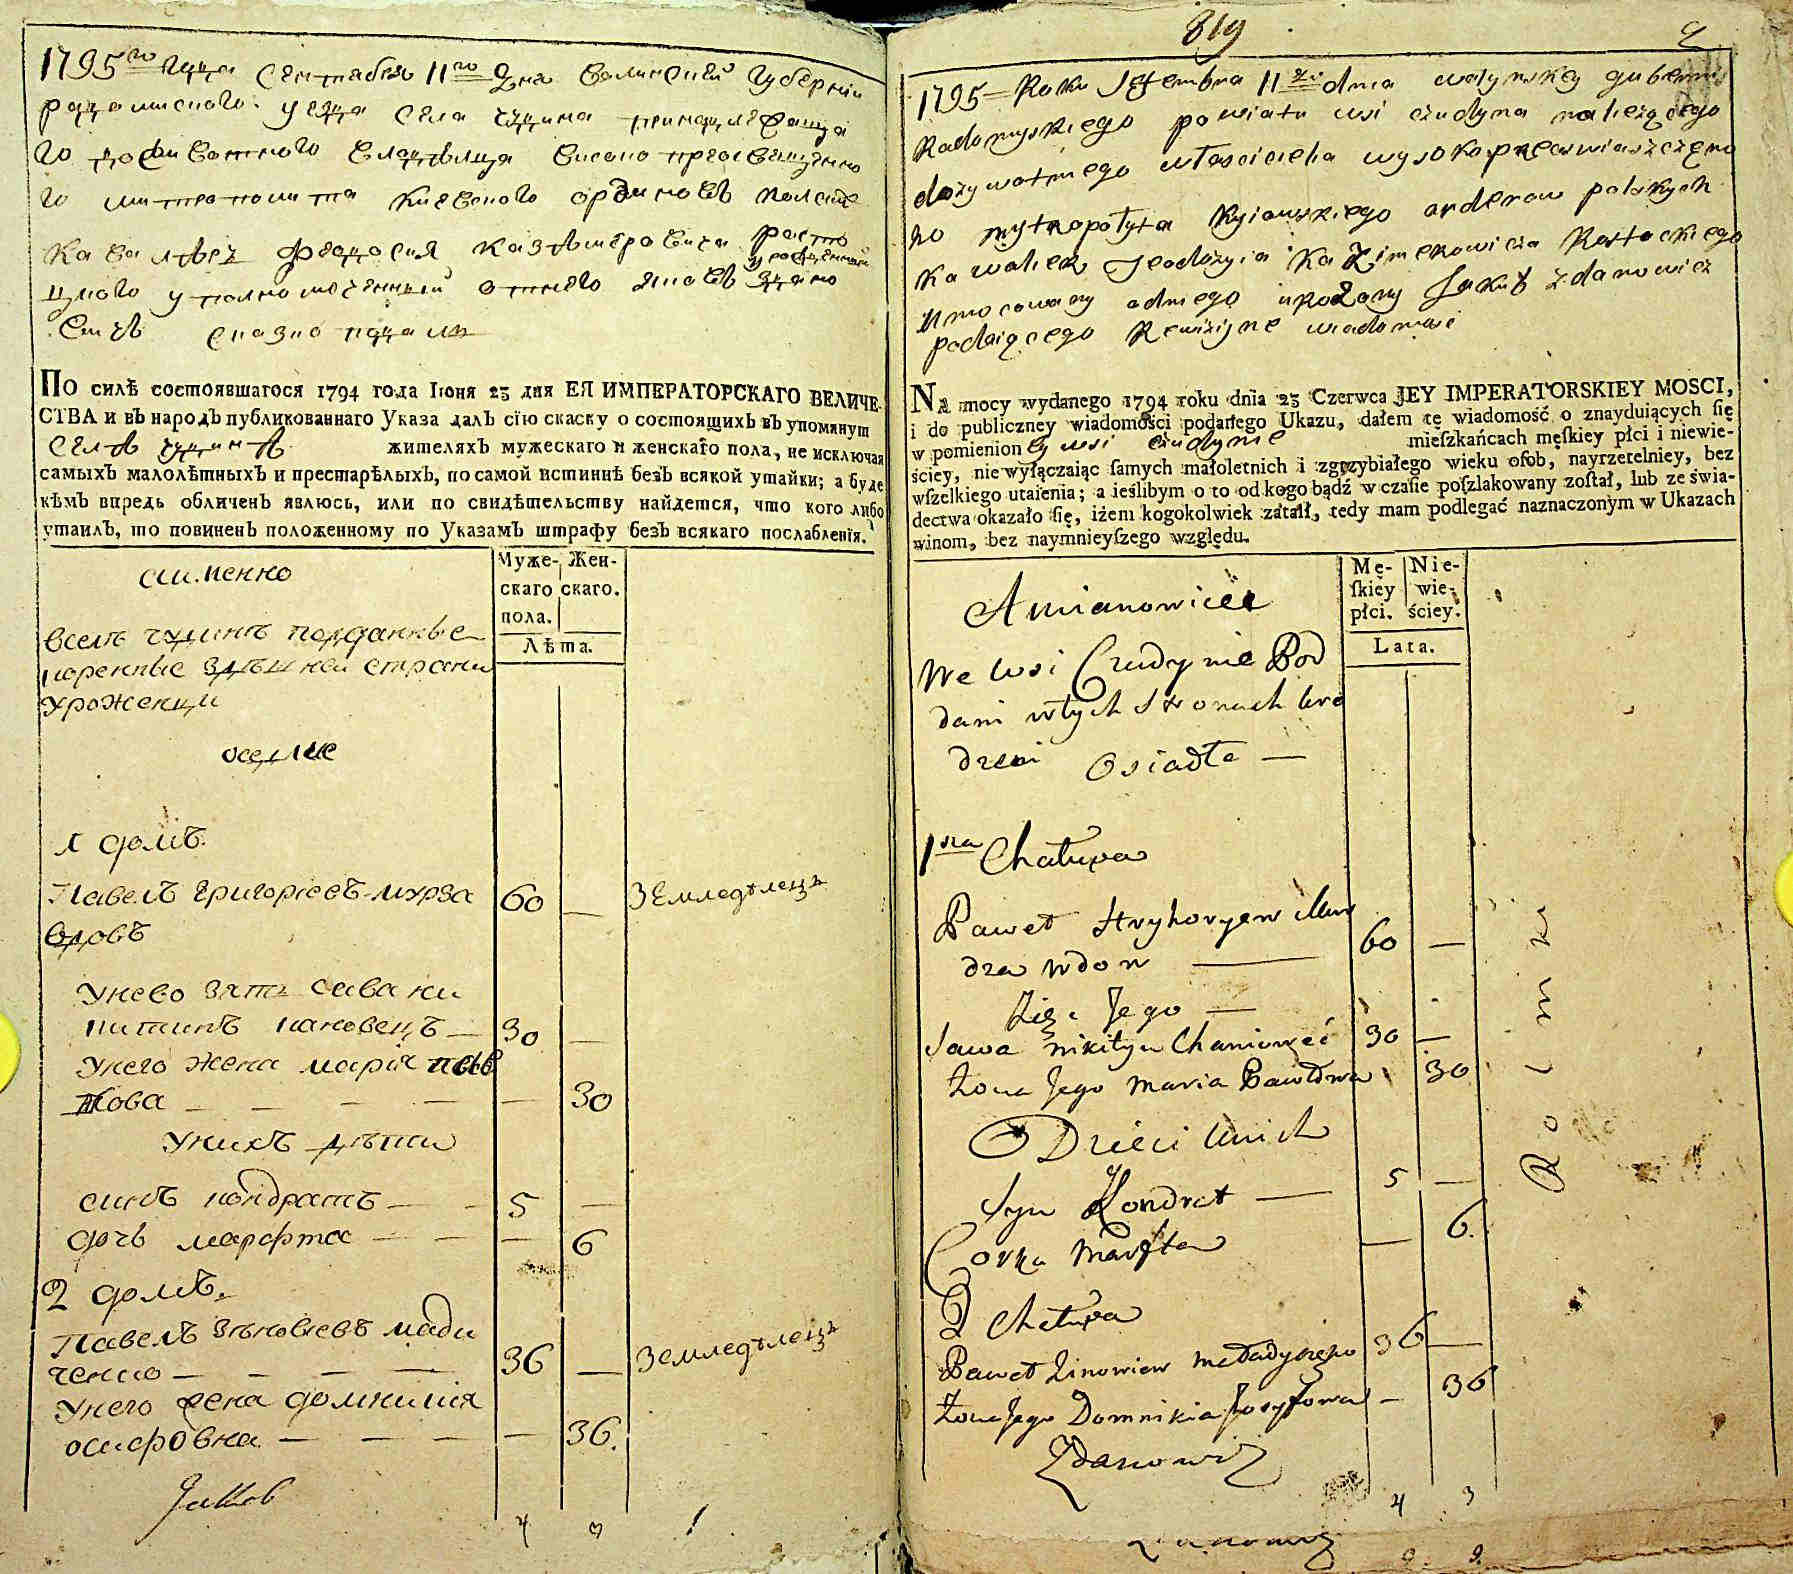 1795го года Сентября 11го дня волинской губернїи
радомиского уезда села чудина принадлежаща
го доживотного владѣлца високо преосвященно
го митрополита киевского орденовъ полских
кавалѣра феодосия казѣмѣровича росто
цкого уполномоченний от него яковъ ждано
вичъ сказко подали
уражденний
По силѣ состоявшагося 1794 года Іюня 23 дня ЕЯ ИМПЕРАТОРСКАГО ВЕЛИЧЕ-
СТВА и въ народъ публикованнаго Указа далъ сію скаску о состоящихъ въ упомянут
селѣ чудинѣ жителяхъ мужескаго и женскаго пола, не исключая
самыхъ малолѣтныхъ и престарѣлыхъ, по самой истиннѣ безъ всякой утайки; а буде
кѣмъ впредь обличенъ явлюсь, или по свидѣтельству найдется, что кого либо
утаилъ, то повиненъ положенному по Указамъ штрафу безъ всякаго послабленія.
Муже- Жен-
скаго скаго.
пола.
Лѣта.
а именно
всемъ чудинѣ подданные
коренные здѣшней страни
уроженци
оседлие
1 домъ.
Павелъ григориевъ мурза 60 — землед�ѣлецъ
вдовъ
унево зять сава ни
китинъ хановецъ — 30 —
унего жена мария пав
лова — — — — — 30
унихъ дѣти
синъ кондратъ — — 5 —
дочь марфта — — — 6
2 домъ.
Павелъ зѣновиевъ млади
ченко — — — 36 — земледѣлецъ
унего жена домникия
осифовна — — — — 36.
Jakob
4 3
819
2
1795 Roku Septembra 11go dnia wołynskey gubernii
Radomyskiego powiatu wsi czudyna należącego
dożywotniego własciciela wysokoprzeswiaszczęno
ho mytropołyta kyiowskiego orderow polskych
kawalera Teodozyia Kazimerowicza Rostockiego
umocowany odniego urodzony Jakub Zdanowicz
podaiącego Rewizijne wiadomosci
Na mocy wydanego 1794 roku dnia 23 Czerwca JEY IMPERATORSKIEY MOSCI,
i do publiczney wiadomości podanego Ukazu, dałem tę wiadomość o znayduiących się
w pomienioney wsi czudynie mieſzkańcach męſkiey płci i niewie-
ściey, nie wyłączaiąc ſamych małoletnich i zgrzybiałego wieku oſob, nayrzetelniey, bez
wſzelkiego utaienia; a ieślibym o to od kogo bądź w czaſie poſzlakowany zoſtał, lub ze świa-
dectwa okazało ſię, iżem kogokolwiek zataił, tedy mam podlegać naznaczonym w Ukazach
winom, bez naymnieyſzego względu.
Mę- Nie-
ſkiey wie-
płci. ściey.
Lata.
A mianowicie
We wsi Czudynie Pod
dani wtych stronach uro
dzeni Osiadłe —
1sza Chałupa
Paweł Hryhoryew Mur
dza wdow — 60 —
Zięć Jego —
Sawa nikityn Chanioweć 30 —
Żona Jego Maria Pawłowa 30
Dzieci unich
Syn Kondrat — 5 —
Corka Marfta — 6.
2 Chałupa
Paweł Zinowiew Mładyczęko 36 —
Żona Jego Domnikia Josyfowa — 36
Zdanowicz
4 3
Rolnik